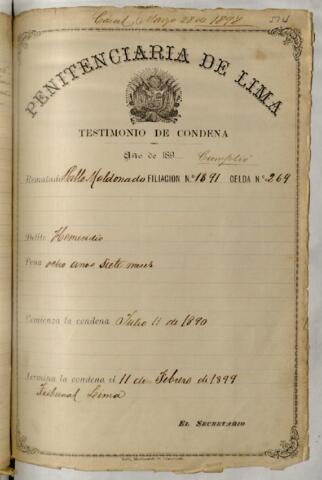 Marzo 28 de 1898
PENITENCIARIA DE LIMA
TESTIMONIO DE CONDENA
Año de 189 Cumplió
Rematado Maldonado FILIACION N.º 1891 CELDA N.º 269
Delito Homicidio
Pena ocho años siete meses
Comienza la condena Julio 11 de 1890
Termina la condena el 11 de Febrero de 1899
Tribunal Lima
EL SECRETARIO